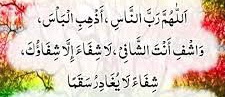 اَللّٰهُمَّ رَبَّ النَّاسِ، أَذْهِبِ الْبَأْسَ،
وَاشْفِ أَنْتَ الشَّافِیْ، لَا شِفَاءَ إِلَّا شِفَاؤُكَ،
شِفَاءً لَا یُغَادِرُ سَقَمًا